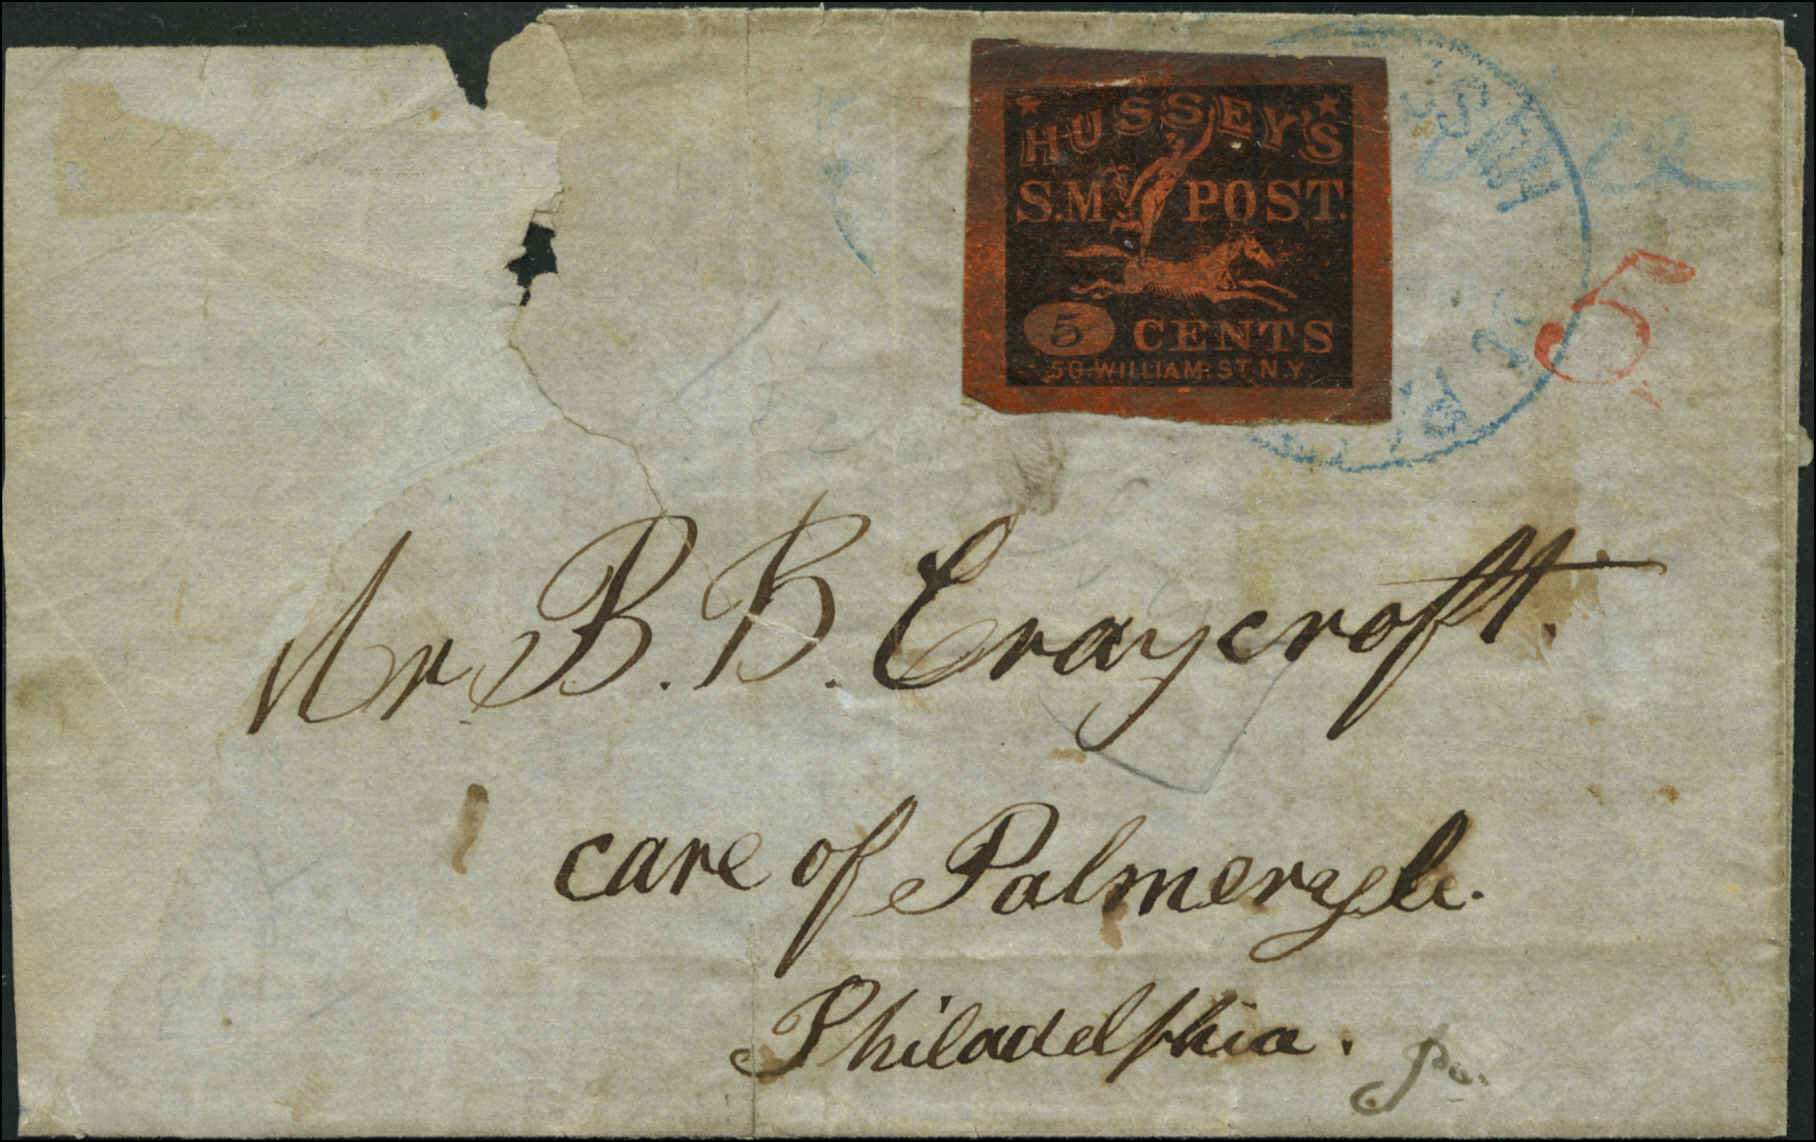 HUSSEY'S
S.M POST.
5 CENTS
50 WILLIAM. ST. N.Y.
5
Mr. B. B. Craycroft.
care of
Philadelphia.
Pa.